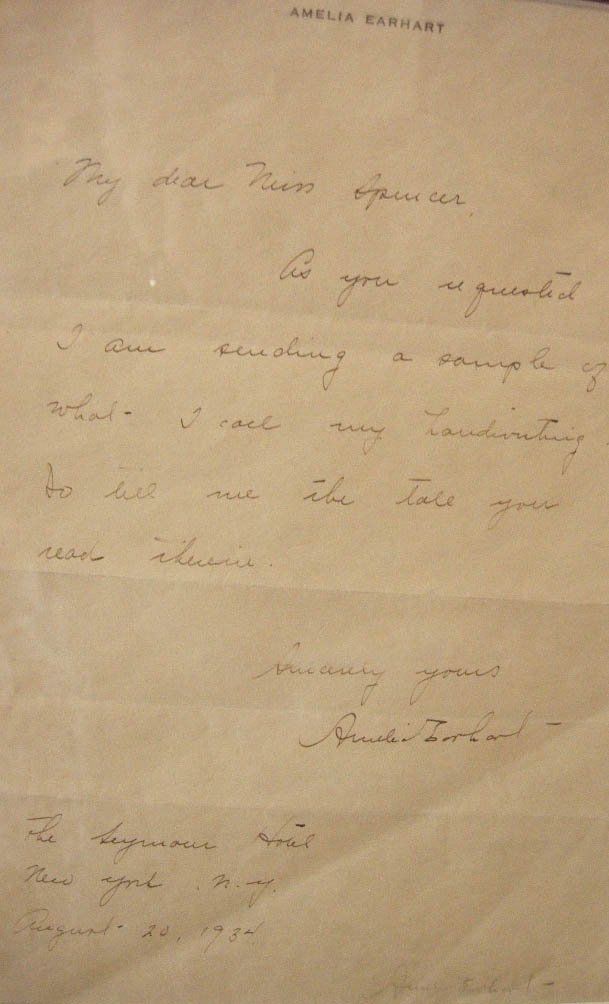 AMELIA EARHART
My dear Miss Spencer,
As you requested
I am sending a sample of
what I call my handwriting.
Do tell me the tale you
read therein.
Sincerely yours
Amelia Earhart
The Seymour Hotel
New York, N.Y.
August 20, 1934
Amelia Earhart